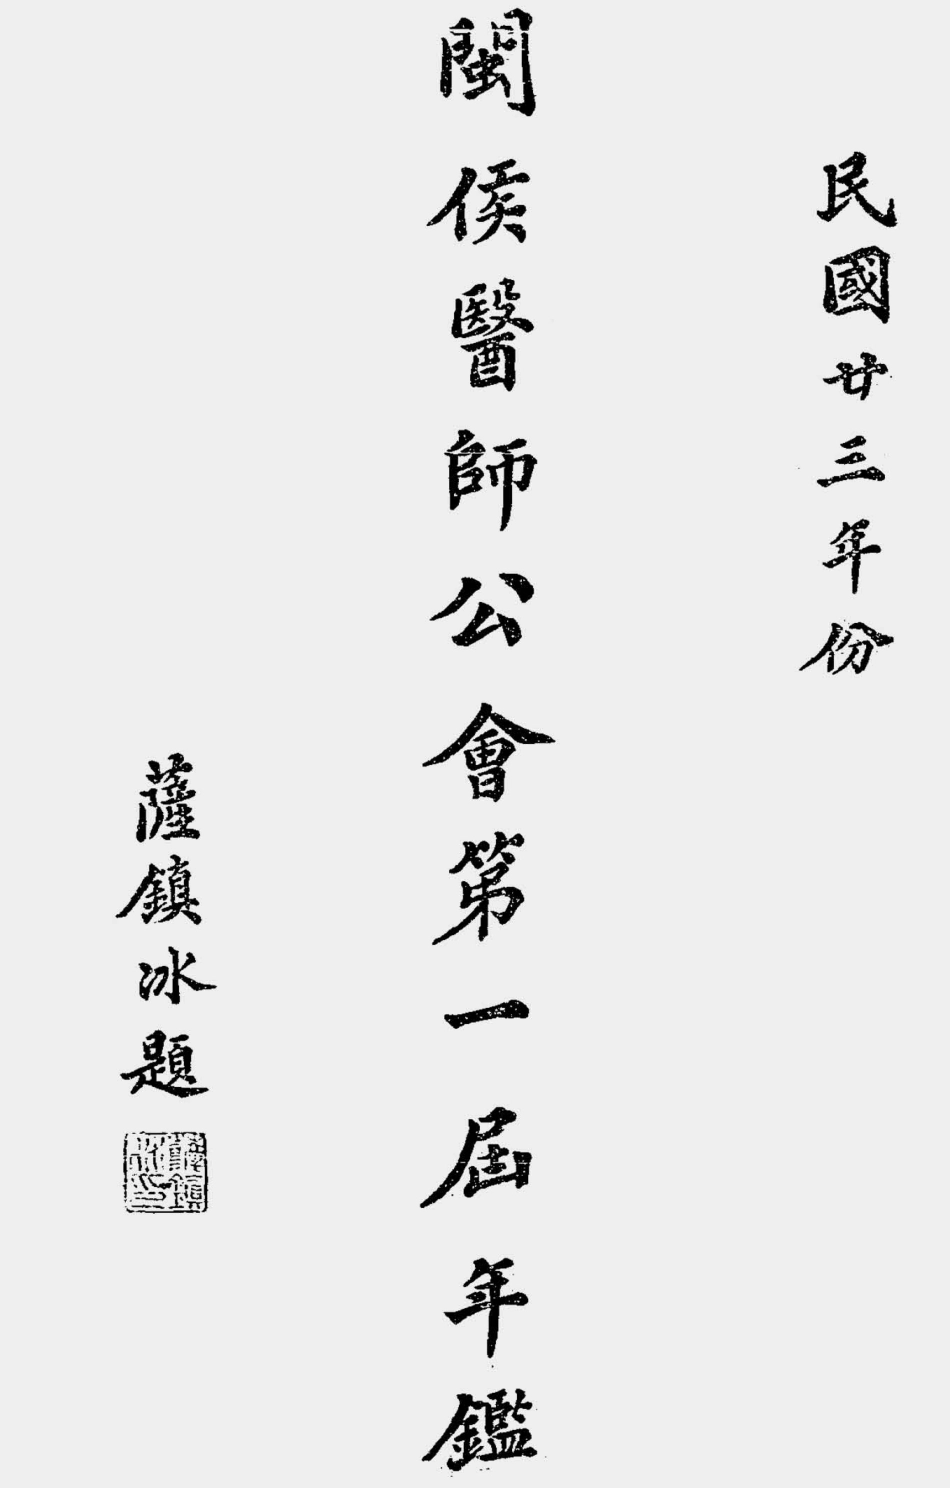 民國廿三年份
閩侯醫師公會第一屆年鑑
薩鎮冰題
薩鎮冰印